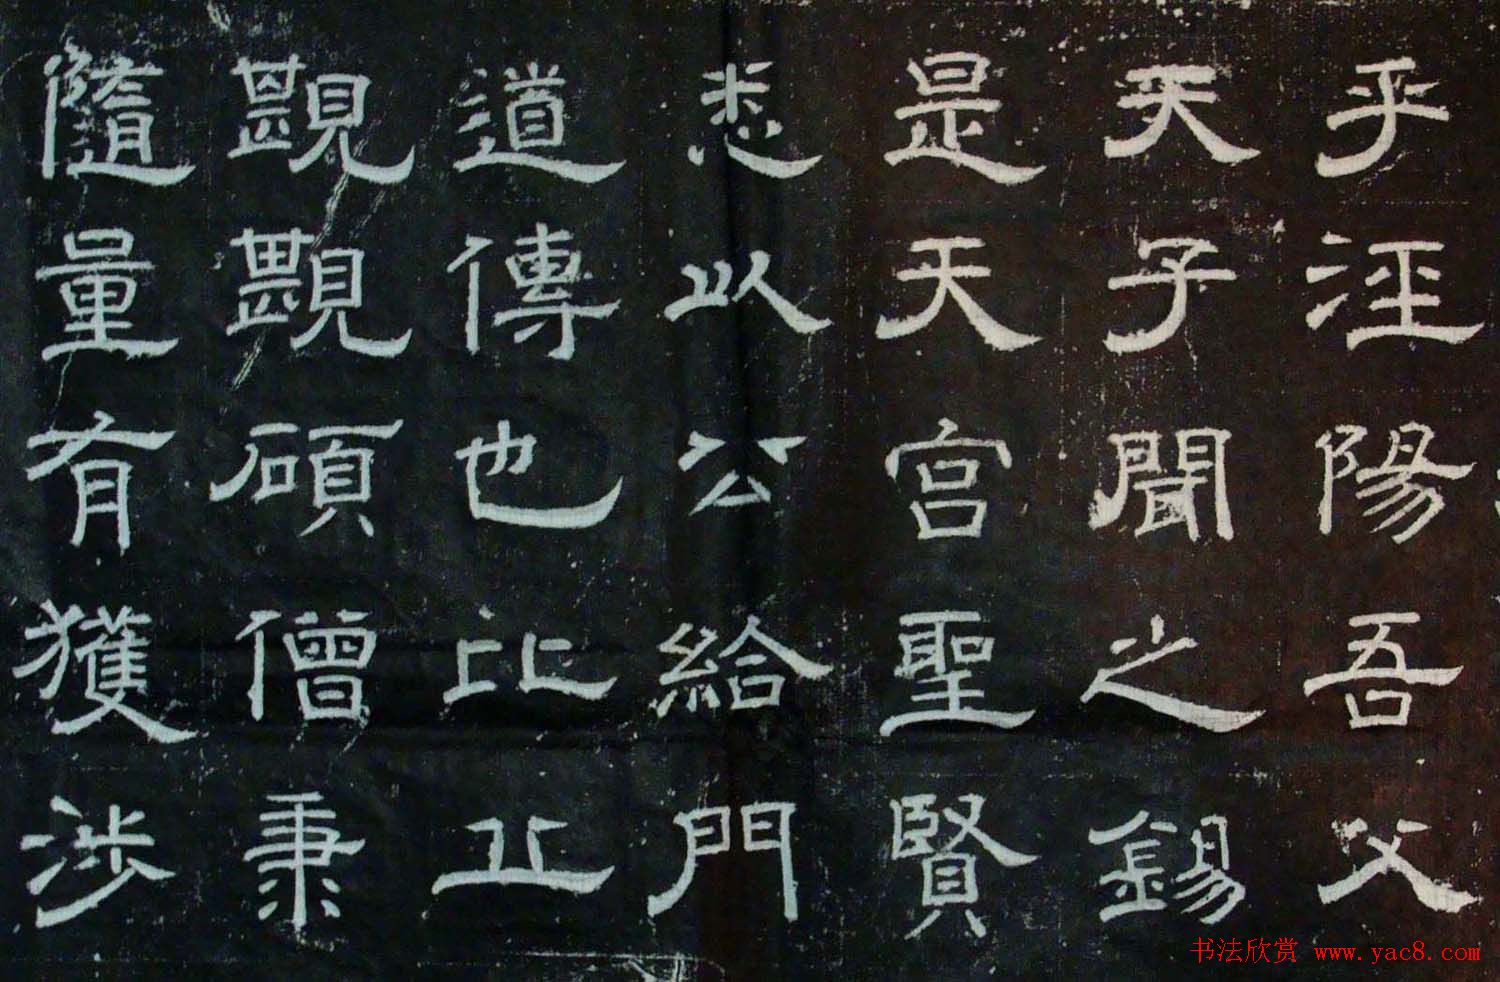 乎涇陽吾父
天子聞之錫
是天宮聖賢
悉以公給門
道傳也比丘
碩僧秉
隨量有獲涉
书法欣赏 www.yac8.com